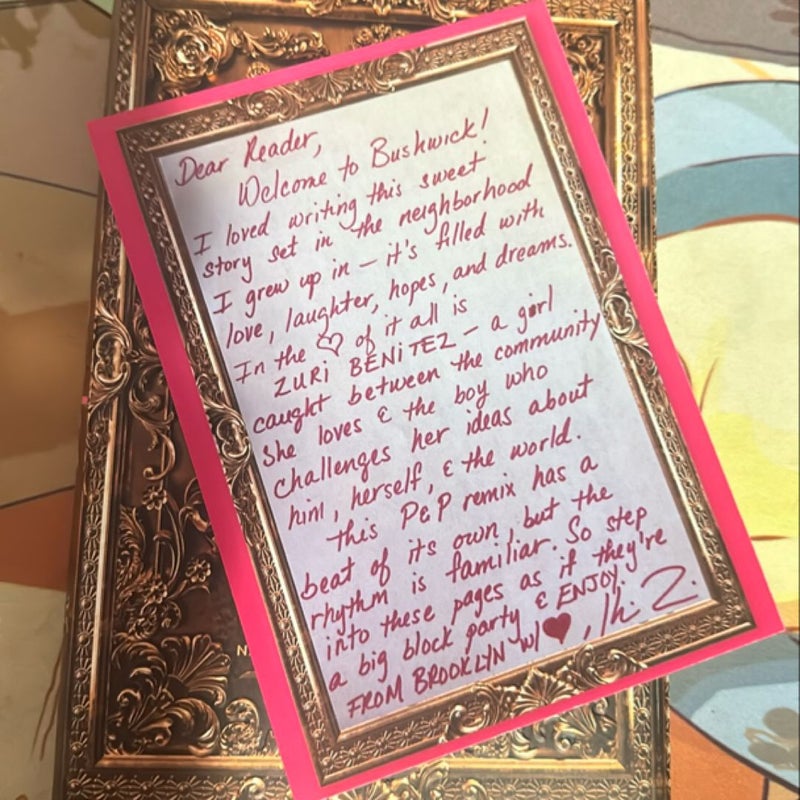 Dear Reader,
Welcome to Bushwick!
I loved writing this sweet
story set in the neighborhood
I grew up in – it's filled with
love, laughter, hopes, and dreams.
In the ♡ of it all is
ZURi BENiTEZ – a girl
caught between the community
she loves & the boy who
challenges her ideas about
him, herself, & the world.
this P&P remix has a
beat of its own but the
rhythm is familiar. So step
into these pages as if they're
a big block party & ENJOY.
FROM BROOKLYN w/ ♥,